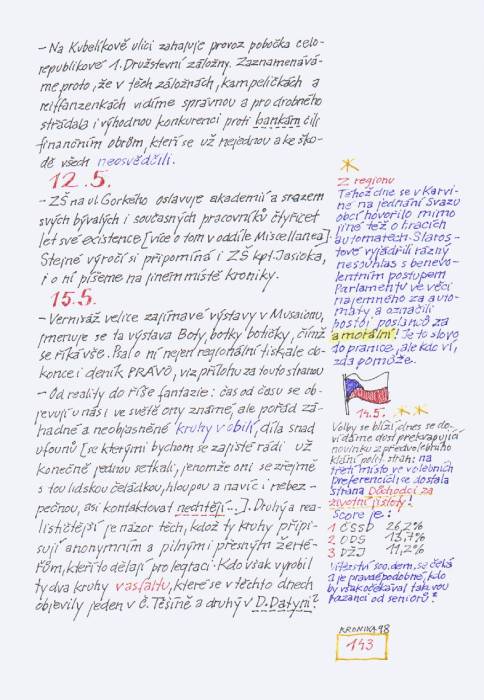 – Na Kubelíkově ulici zahajuje provoz pobočka celo-
republikové 1. Družstevní záložny. Zaznamenává-
me proto, že v těch záložnách, kampeličkách a
reiffanzenkách vidíme správnou a pro drobného
střádala i výhodnou konkurenci proti bankám čili
finančním obrům, kteří se už nejednou a ke ško-
dě všech neosvědčili.
12.5.
– ZŠ na ul. Gorkého oslavuje akademií a srazem
svých bývalých i současných pracovníků čtyřicet
let své existence [více o tom v oddíle Miscellanea].
Stejné výročí si připomíná i ZŠ kpt. Jasioka,
i o ní píšeme na jiném místě kroniky.
15.5.
– Vernisáž velice zajímavé výstavy v Musaionu,
jmenuje se ta výstava Boty, botky botičky, čímž
se říká vše. Psal o ní nejen regionální tisk ale do-
konce i deník PRÁVO, viz přílohu za touto stranou
– Od reality do říše fantazie: čas od času se ob-
jevují u nás i ve světě ony známé, ale pořád zá-
hadné a neobjasněné kruhy v obilí, díla snad
ufounů [se kterými bychom se zajisté rádi už
konečně jednou setkali, jenomže oni se zřejmě
s tou lidskou čeládkou, hloupou a navíc i nebez-
pečnou, asi kontaktovat nechtějí...]. Druhý a rea-
lističtější je názor těch, kdož ty kruhy připi-
sují anonymním a pilným i přesným žerté-
řům, kteří to dělají pro legraci. Kdo však vyrobil
ty dva kruhy v asfaltu, které se v těchto dnech
objevily jeden v Č. Těšíně a druhý v D. Datyni?
Z regionu
Téhož dne se v Karvi-
né na jednání Svazu
obcí hovořilo mimo
jiné též o hracích
automatech. Staros-
tové vyjádřili rázný
nesouhlas s benevo-
lentním postupem
Parlamentu ve věci
nájemného za auto-
maty a označili
postoj poslanců za
amorální! Je to slovo
do pranice, ale kdo ví,
zda pomůže.
14.5.
Volby se blíží, dnes se do-
vídáme dost překvapující
novinku z předvolebního
klání polit. stran: na
třetí místo ve volebních
preferencích se dostala
strana Důchodci za
životní jistoty!
Score je:
1 ČSSD 26,2%
2 ODS 13,7%
3 DŽJ 11,2%
Vítězství soc. dem. se čeká
a je pravděpodobné, kdo
by však očekával takovou
od seniorů?
KRONIKA 98
143